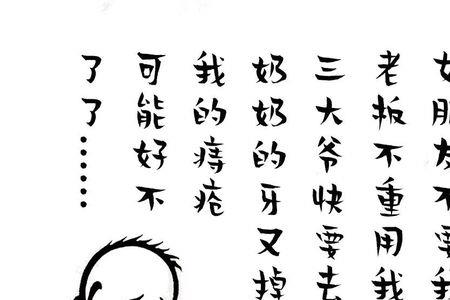 女朋友不要我
老板不重用我
三大爷快要去
奶奶的牙又掉
我的痔疮
可能好不
了了……